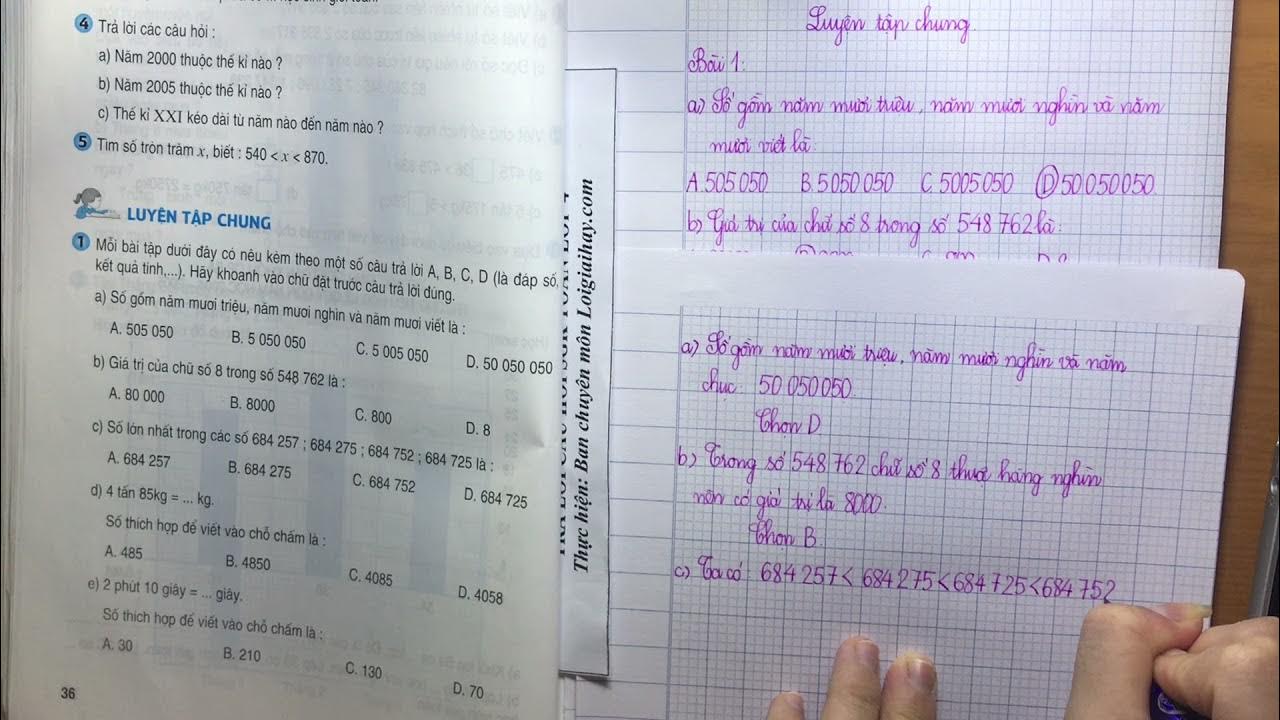 4 Trả lời các câu hỏi :
a) Năm 2000 thuộc thế kỉ nào ?
b) Năm 2005 thuộc thế kỉ nào ?
c) Thế kỉ XXI kéo dài từ năm nào đến năm nào ?
5 Tìm số tròn trăm x, biết : 540 < x < 870.
LUYỆN TẬP CHUNG
1 Mỗi bài tập dưới đây có nêu kèm theo một số câu trả lời A, B, C, D (là đáp số,
kết quả tính,...). Hãy khoanh vào chữ đặt trước câu trả lời đúng.
a) Số gồm năm mươi triệu, năm mươi nghìn và năm mươi viết là :
A. 505 050 B. 5 050 050 C. 5 005 050 D. 50 050 050
b) Giá trị của chữ số 8 trong số 548 762 là :
A. 80 000 B. 8000 C. 800 D. 8
c) Số lớn nhất trong các số 684 257 ; 684 275 ; 684 752 ; 684 725 là :
A. 684 257 B. 684 275 C. 684 752 D. 684 725
d) 4 tấn 85kg = ... kg.
Số thích hợp để viết vào chỗ chấm là :
A. 485 B. 4850 C. 4085 D. 4058
e) 2 phút 10 giây = ... giây.
Số thích hợp để viết vào chỗ chấm là :
A. 30 B. 210 C. 130 D. 70
36
Thực hiện: Ban chuyên môn Loigiaihay.com
Luyện tập chung
Bài 1:
a) Số gồm năm mươi triệu, năm mươi nghìn và năm
mươi viết là
A. 505 050 B. 5 050 050 C. 5 005 050 D 50 050 050
b) Giá trị của chữ số 8 trong số 548 762 là:
a) Số gồm năm mươi triệu, năm mươi nghìn và năm
chục: 50 050 050.
Chọn D
b) Trong số 548 762 chữ số 8 thuộc hàng nghìn
nên có giá trị là 8000.
Chọn B.
c) Ta có: 684 257 < 684 275 < 684 725 < 684 752